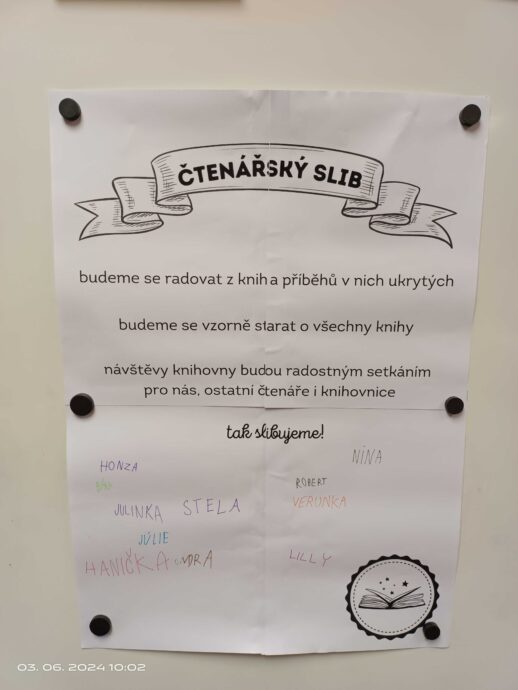 ČTENÁŘSKÝ SLIB
budeme se radovat z knih a příběhů v nich ukrytých
budeme se vzorně starat o všechny knihy
návštěvy knihovny budou radostným setkáním
pro nás, ostatní čtenáře i knihovnice
tak slibujeme!
NINA
HONZA
ROBERT
VERUNKA
JULINKA STELA
JÚLIE
HANIČKA
LILLY
03. 06. 2024 10:02